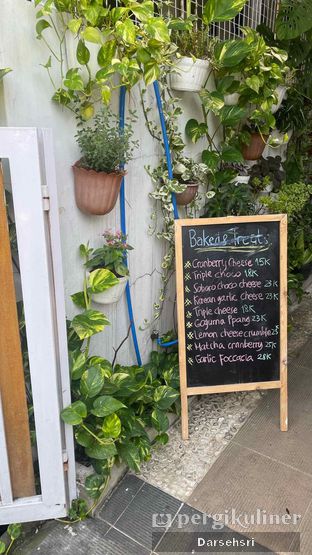 Baked & Treats
Cranberry cheese 15K
Triple choco 18K
Soboro choco cheese 23K
Korean garlic cheese 23K
Triple cheese 18K
Goguma Ppang 23K
Lemon cheese crumble 23
Matcha cranberry 25K
Garlic Foccacia 28K
pergikuliner
Darsehsri